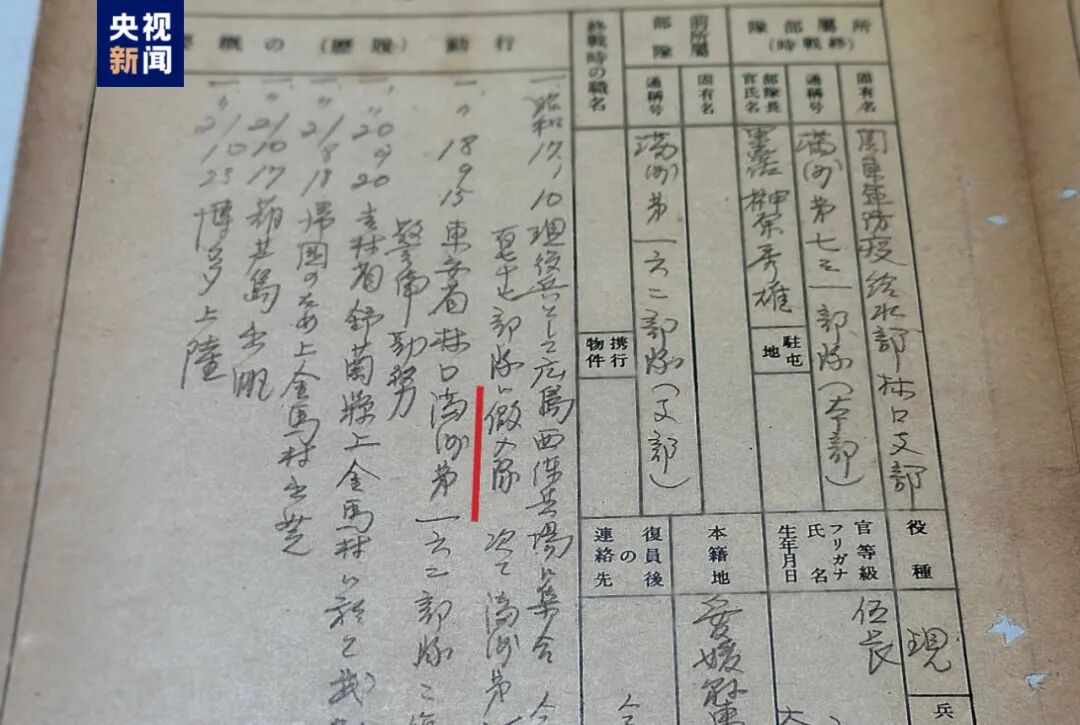 央视
新闻
所屬部隊
(終戰時)
固有名
關東軍防疫給水部林口支部
通稱号
満洲第七三一部隊(本部)
部隊長
官氏名
榊原秀雄
駐屯
地
前所屬
部隊
固有名
通稱号
満洲第一六二部隊(支部)
終戰時の職名
携行
物件
役種
現
兵
官等級
伍長
フリガナ
氏名
生年月日
本籍地
愛媛縣
復員後
の
連絡先
行動(履歷)の概
一、昭和17、10 現役兵トシテ広島西練兵場ニ集合
部隊ニ 入隊 次テ満洲第
一、〃 18 9 15 東安省林口満洲第一六二部隊ニ
警備勤務
一、〃 20 9 20 吉林省舒蘭縣上金馬村ニ於テ
一、〃 21 8 18 帰国のため上金馬村出発
一、〃 21 10 17 葫芦島出帆
一、〃 21 10 23 博多上陸